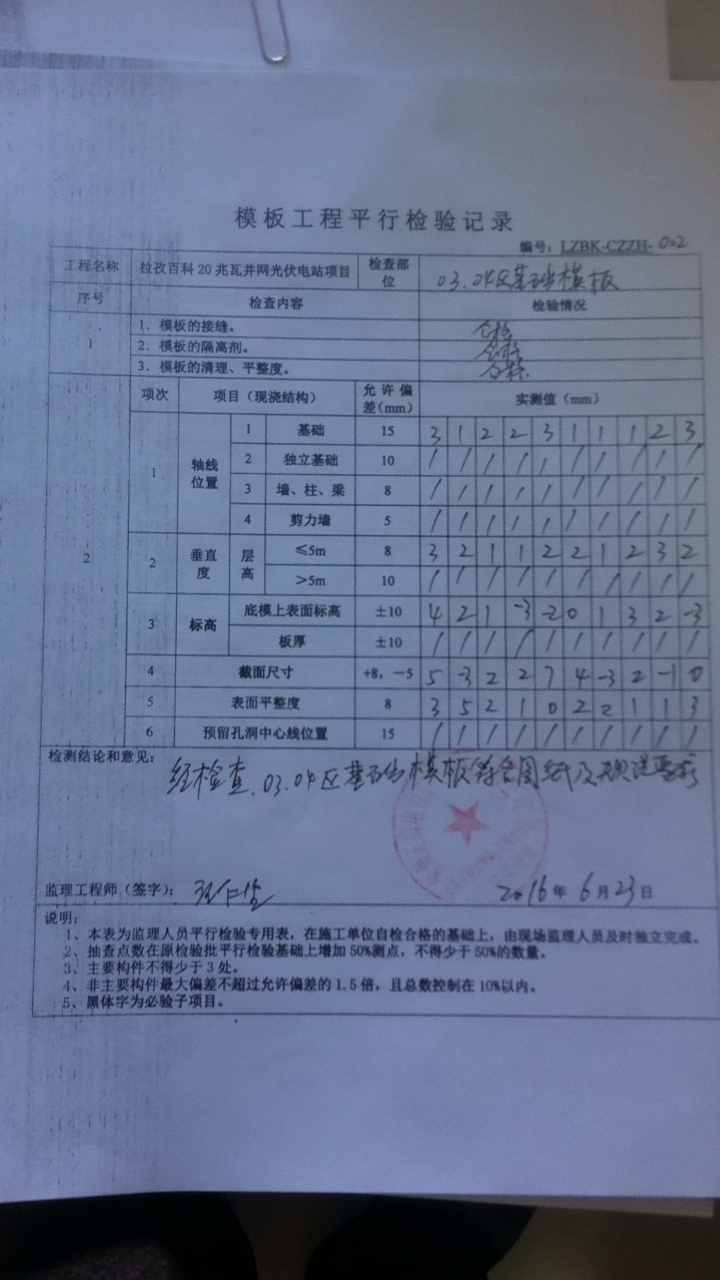 模板工程平行检验记录
编号：LZBK-CZZH-002
工程名称 拉孜百科20兆瓦并网光伏电站项目 检查部位 03.04区基础模板
序号 检查内容 检验情况
1 1．模板的接缝。 合格
2．模板的隔离剂。 合格
3．模板的清理、平整度。 合格
2 项次 项目（现浇结构） 允许偏差(mm) 实测值（mm）
1 轴线位置 1 基础 15 3 1 2 2 3 1 1 1 2 3
2 独立基础 10 / / / / / / / / / /
3 墙、柱、梁 8 / / / / / / / / / /
4 剪力墙 5 / / / / / / / / / /
2 垂直度 层高 ≤5m 8 3 2 1 1 2 2 1 2 3 2
>5m 10 / / / / / / / / / /
3 标高 底模上表面标高 ±10 4 2 1 -3 -2 0 1 3 2 -3
板厚 ±10 / / / / / / / / / /
4 截面尺寸 +8，-5 5 -3 2 2 7 4 -3 2 -1 0
5 表面平整度 8 3 5 2 1 0 2 2 1 1 3
6 预留孔洞中心线位置 15 / / / / / / / / / /
检测结论和意见：
经检查.03.04区基础模板符合图纸及规范要求
监理工程师（签字）： 2016年6月23日
说明：
1、本表为监理人员平行检验专用表，在施工单位自检合格的基础上，由现场监理人员及时独立完成。
2、抽查点数在原检验批平行检验基础上增加50%测点，不得少于50%的数量。
3、主要构件不得少于3处。
4、非主要构件最大偏差不超过允许偏差的1.5倍，且总数控制在10%以内。
5、黑体字为必验子项目。